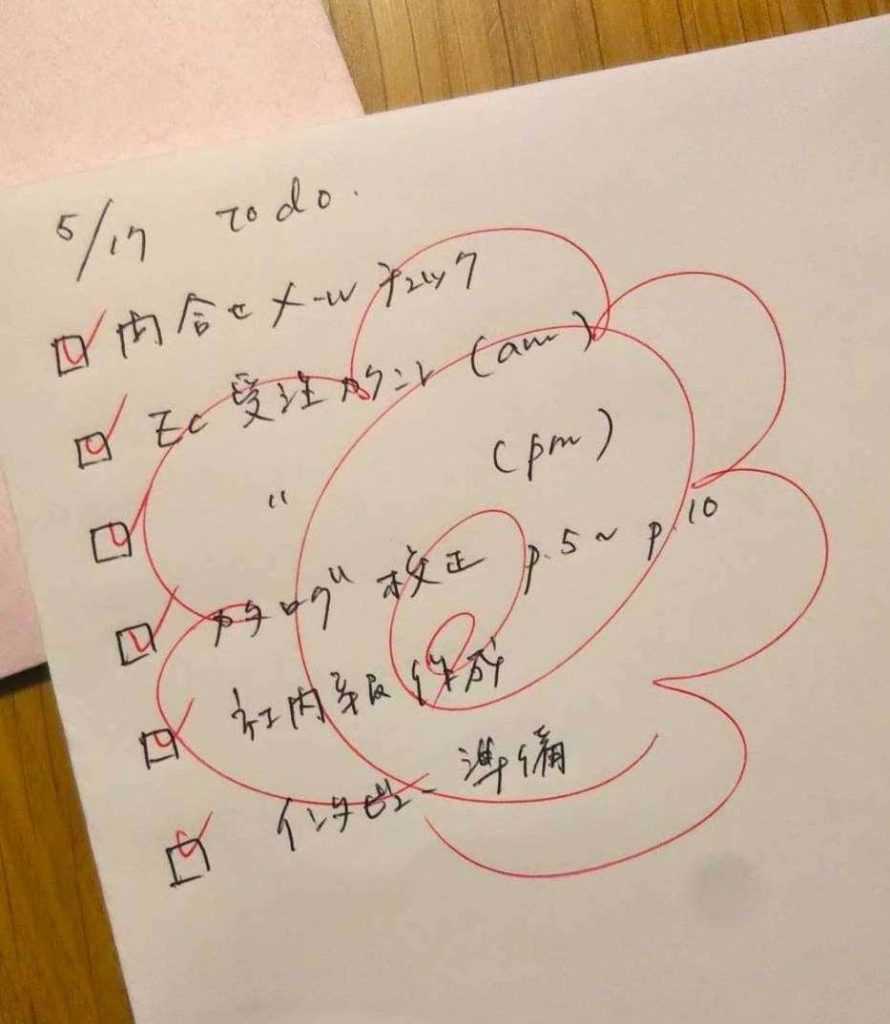 5/17 To do.
内合せメールチェック
EC 受注カウント (am)
〃 (pm)
カタログ 校正 p.5~p.10
社内報 作成
インタビュー 準備